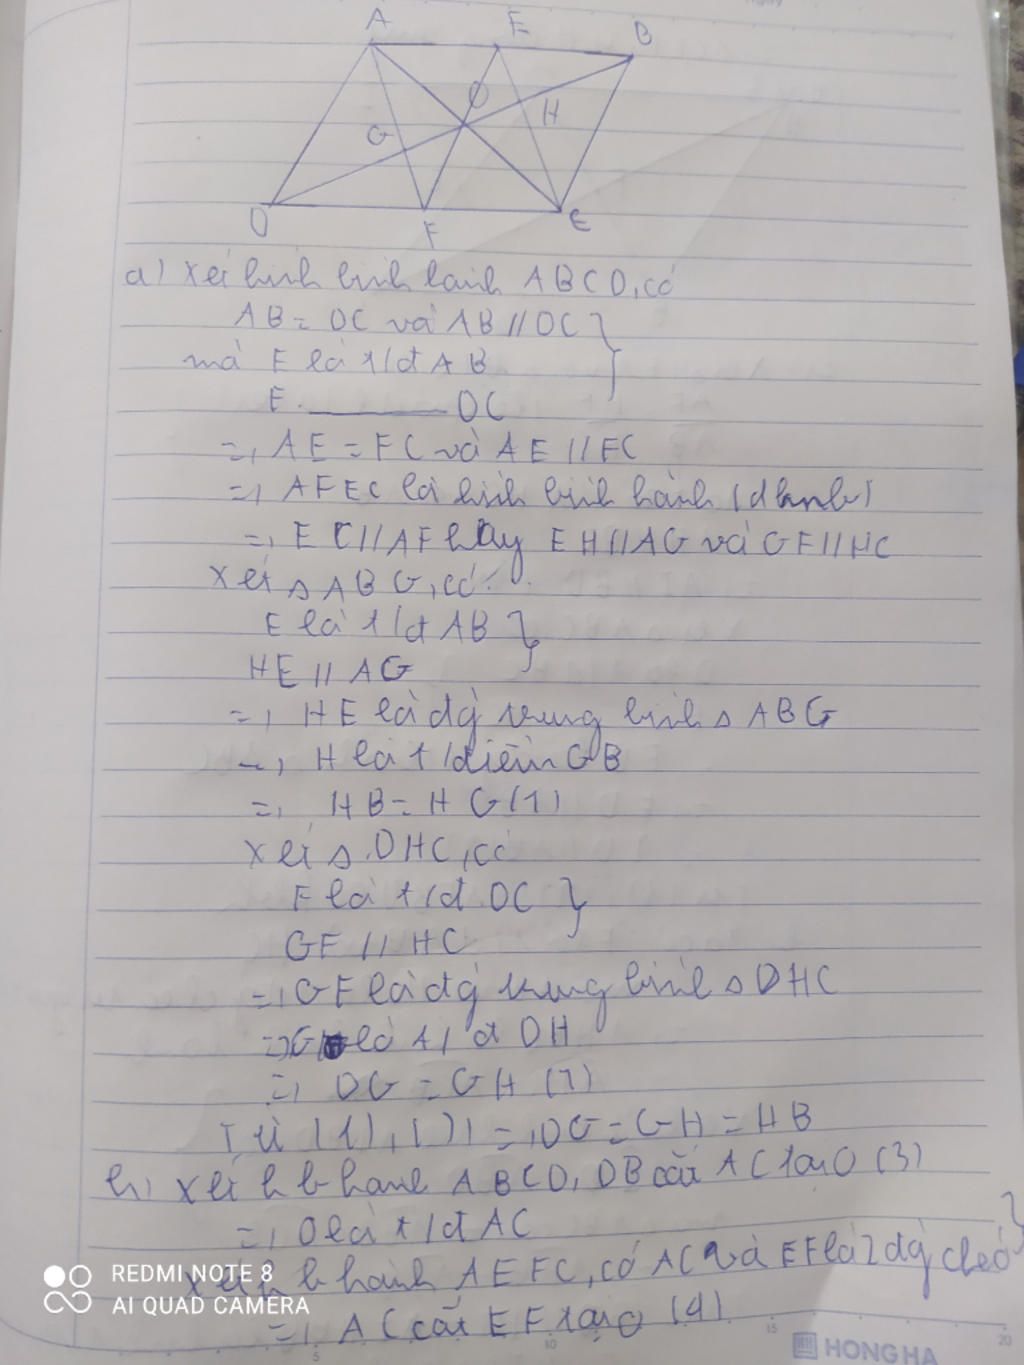 A E B
O H
G
D F C
a) Xét hình bình hành ABCD, có
AB = DC và AB // DC
mà E là t/đ AB
F ——— DC
=> AE = FC và AE // FC
=> AFEC là hình bình hành (dhnb)
=> EC // AF hay EH // AG và GF // HC
Xét Δ ABG, có:
E là t/đ AB
HE // AG
=> HE là đg trung bình Δ ABG
=> H là t/điểm GB
=> HB = HG (1)
Xét Δ DHC, có
F là t/đ DC
GF // HC
=> GF là đg trung bình Δ DHC
=> G là t/đ DH
=> DG = GH (2)
Từ (1), (2) => DG = GH = HB
b) Xét hb hành ABCD, DB cắt AC tại O (3)
=> O là t/đ AC
Xét hb hành AEFC, có AC và EF là 2 đg chéo
=> AC cắt EF tại O (4)
REDMI NOTE 8
AI QUAD CAMERA
5 10 15 20
HONG HA